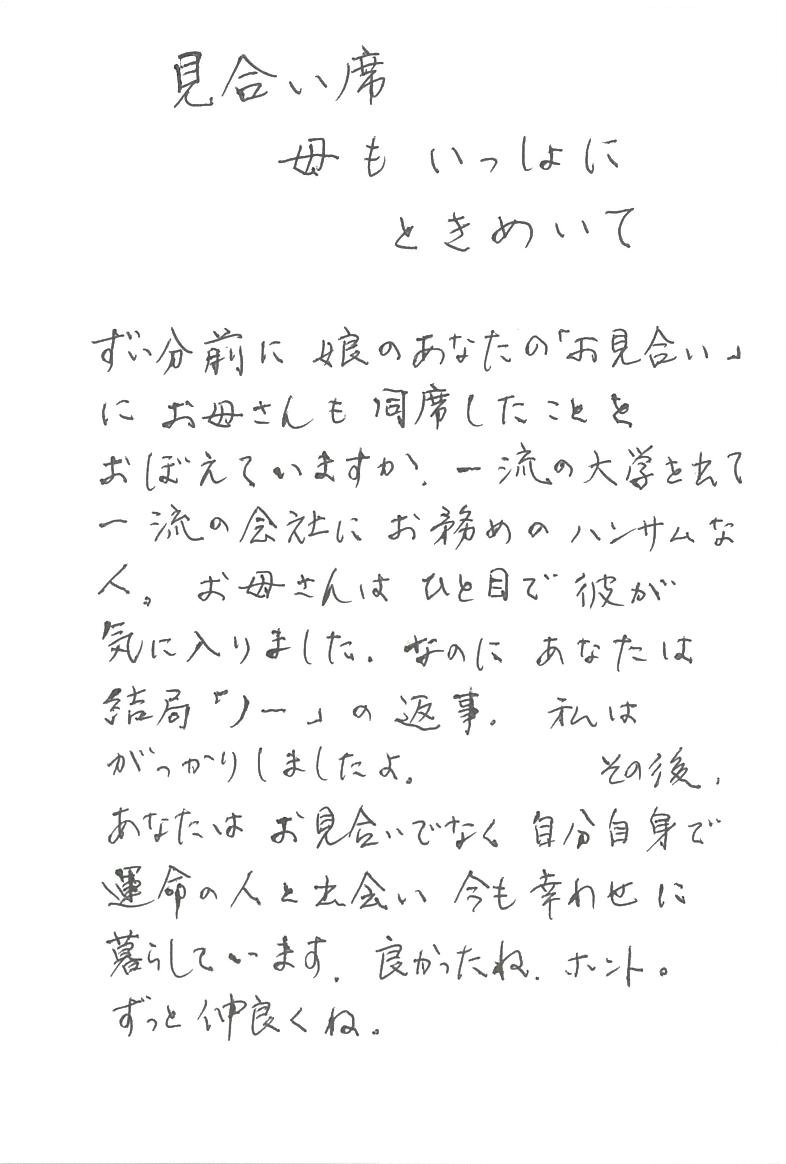 見合い席
母もいっしょに
ときめいて
ずい分前に 娘のあなたの「お見合い」
に お母さんも 同席したことを
おぼえていますか. 一流の大学を出て
一流の会社に お務めの ハンサムな
人。 お母さんは ひと目で 彼が
気に入りました. なのに あなたは
結局「ノー」の 返事. 私は
がっかりしましたよ. その後,
あなたは お見合いでなく 自分自身で
運命の人と出会い 今も幸わせに
暮らしています. 良かったね. ホント。
ずっと仲良くね。